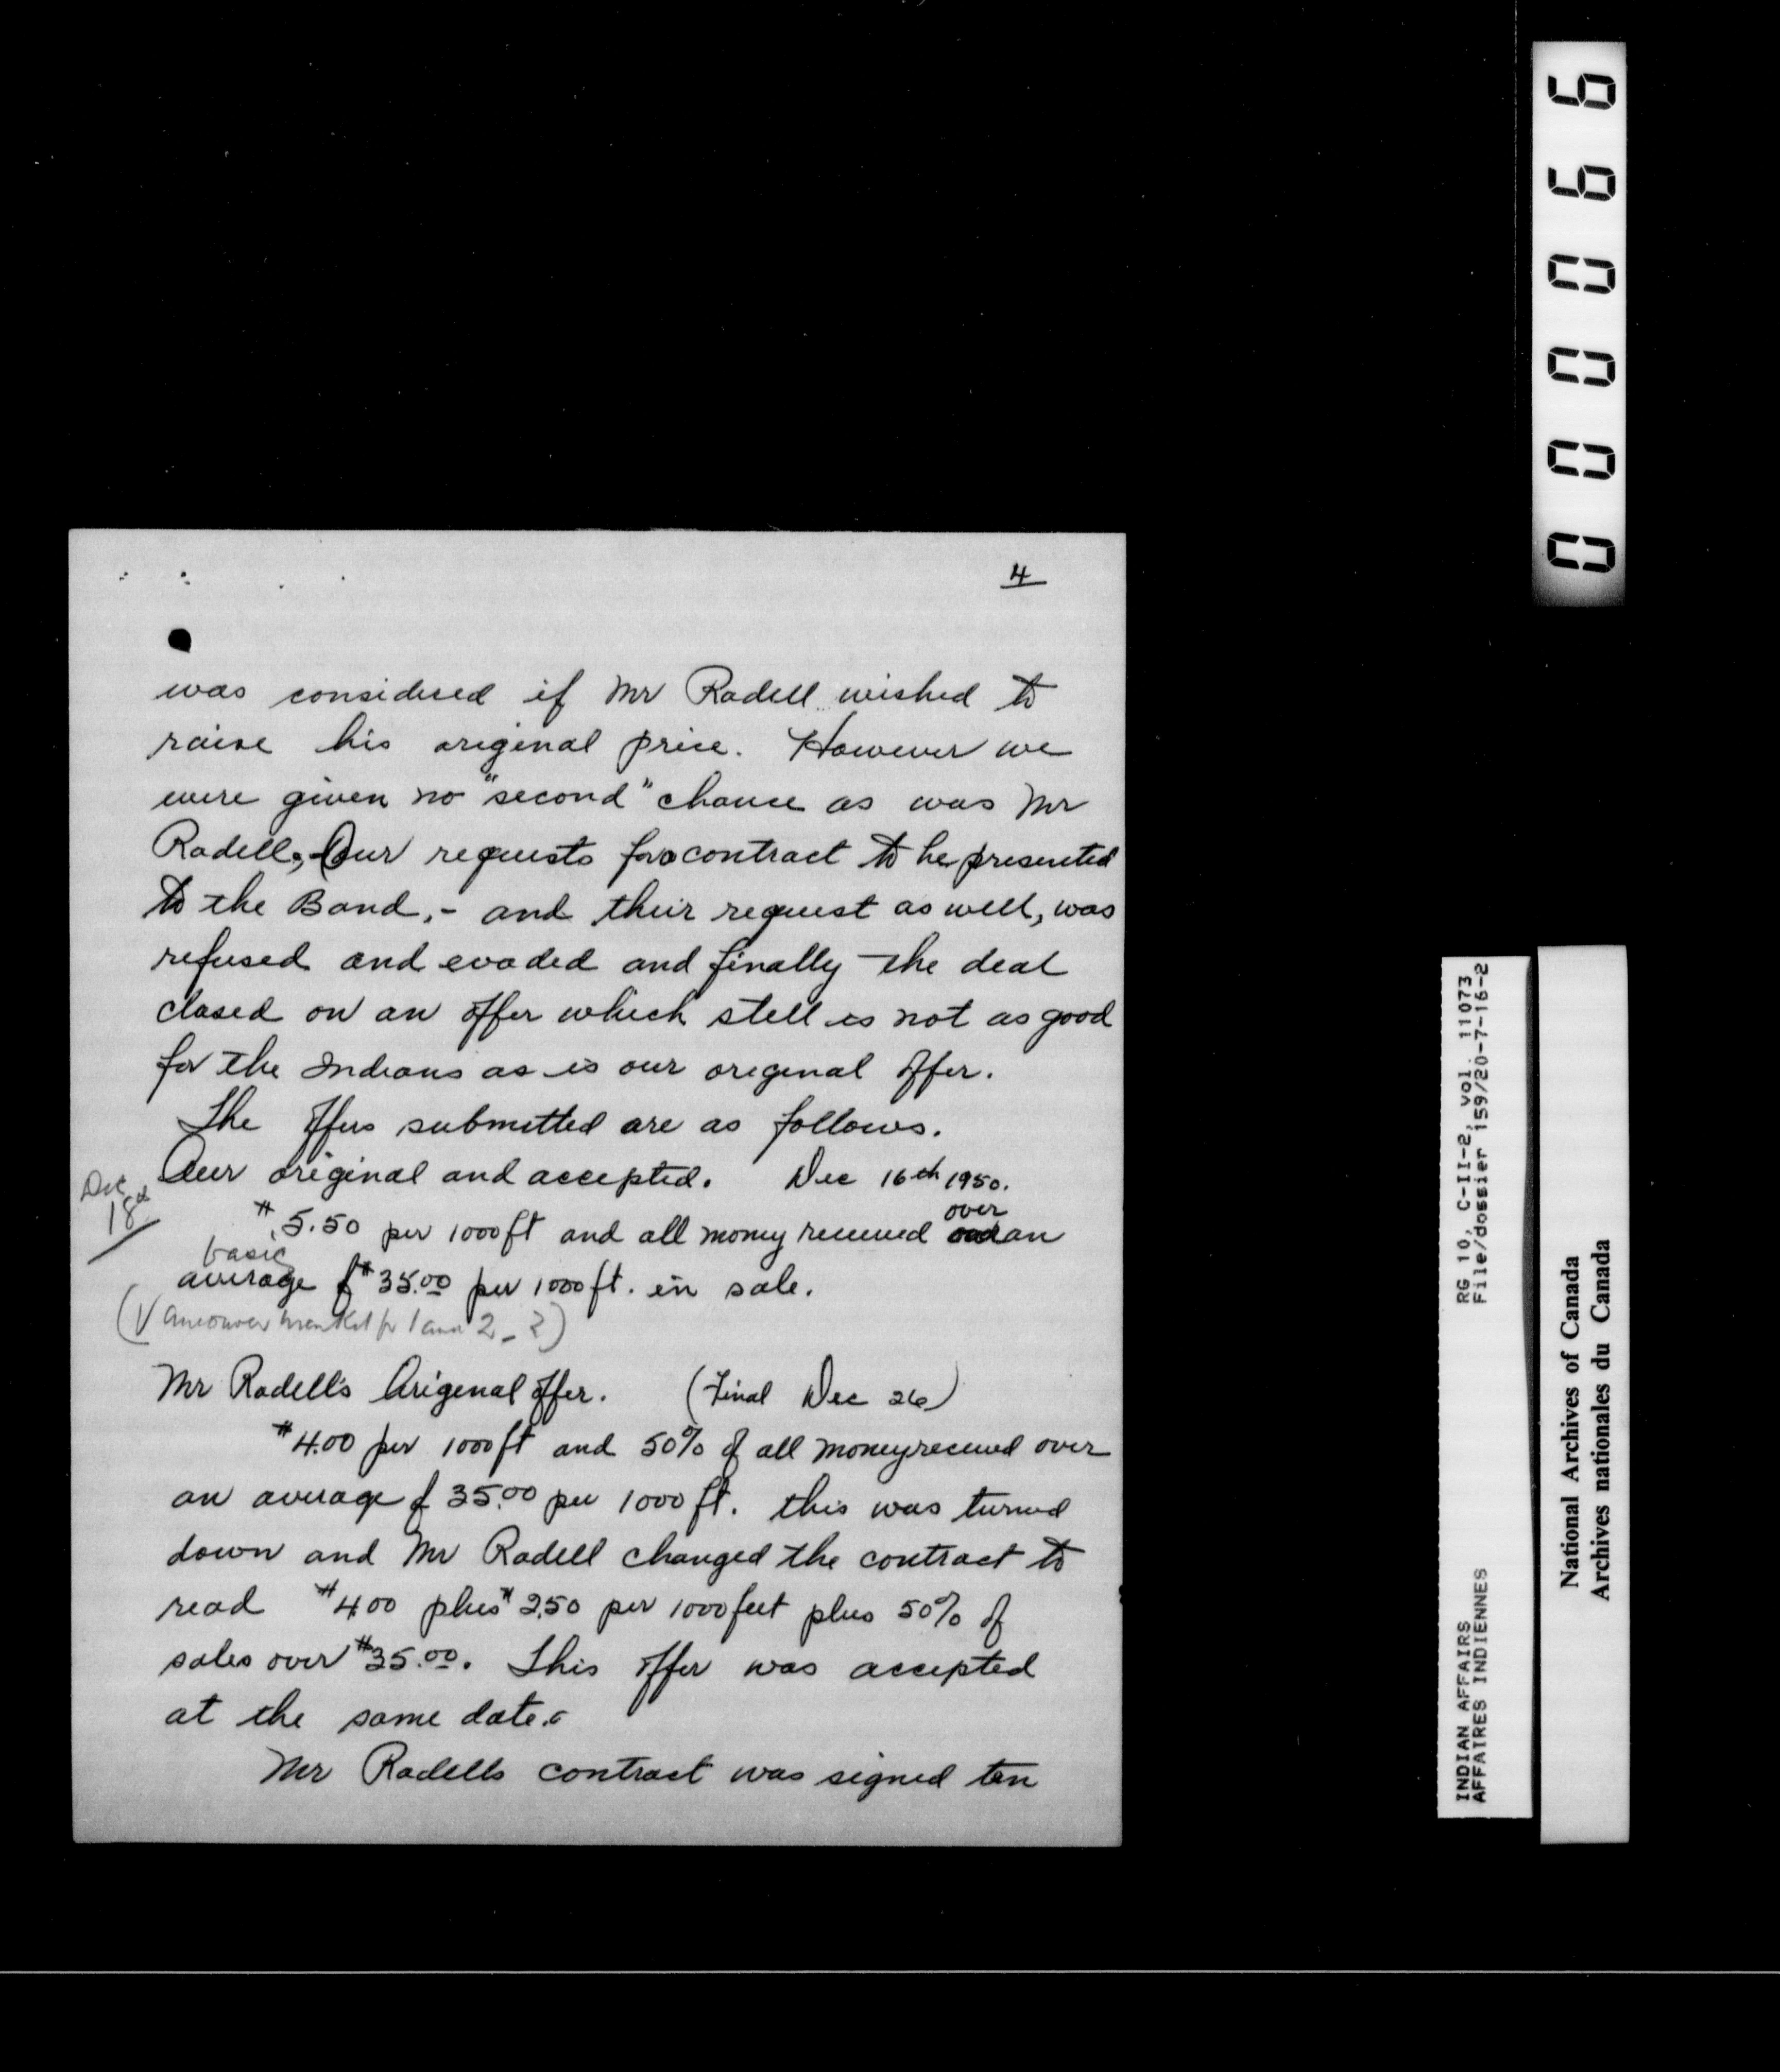 4
was considered if Mr Radell wished to
raise his original price. However we
were given no "second" chance as was Mr
Radell, Our requests for a contract to be presented
to the Band,- and their request as well, was
refused and evaded and finally the deal
closed on an offer which still is not as good
for the Indians as is our original offer.
The offers submitted are as follows.
Our original and accepted. Dec 16th 1950.
Dec 18th
over
$5.50 per 1000 ft and all money received an
basic
average of $35.00 per 1000 ft. in sale.
(Vancouver market for 1 and 2 - 3)
Mr Radell's Original offer. (Final Dec 26)
$4.00 per 1000 ft and 50% of all money received over
an average of 35.00 per 1000 ft. this was turned
down and Mr Radell changed the contract to
read $4.00 plus $2.50 per 1000 feet plus 50% of
sales over $35.00. This offer was accepted
at the same date.
Mr Radells contract was signed ten
000066
RG 10, C-II-2, vol. 11073
File/dossier 159/20-7-16-2
INDIAN AFFAIRS
AFFAIRES INDIENNES
National Archives of Canada
Archives nationales du Canada